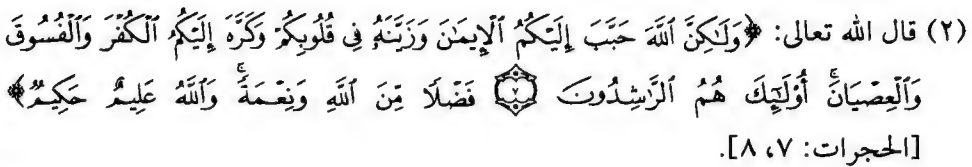 (٢) قال الله تعالى: ﴿وَلَٰكِنَّ ٱللَّهَ حَبَّبَ إِلَيْكُمُ ٱلْإِيمَٰنَ وَزَيَّنَهُۥ فِى قُلُوبِكُمْ وَكَرَّهَ إِلَيْكُمُ ٱلْكُفْرَ وَٱلْفُسُوقَ
وَٱلْعِصْيَانَ ۚ أُو۟لَٰٓئِكَ هُمُ ٱلرَّٰشِدُونَ ۝٧ فَضْلًا مِّنَ ٱللَّهِ وَنِعْمَةً ۚ وَٱللَّهُ عَلِيمٌ حَكِيمٌ﴾
[الحجرات: ٧، ٨].